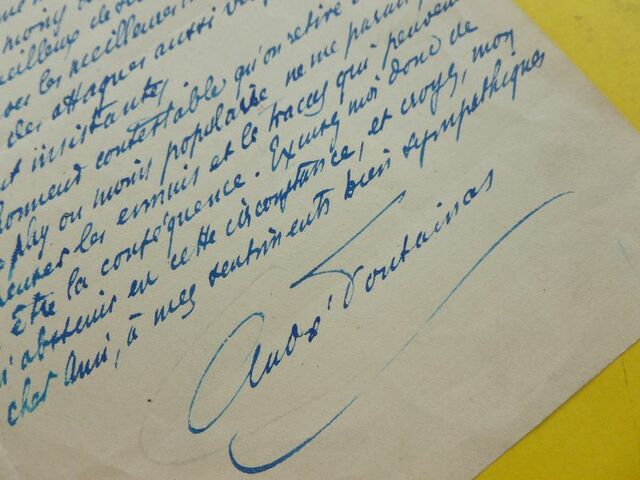 moins
meilleux de
les meilleures
des attaques aussi
instantes
contestable qu'on retire
plus ou moins populaire ne me parais
les ennuis et le tracas qui peuvent
être la conséquence. Excusez moi donc de
m'abstenir en cette circonstance, et croyez, mon
cher Ami, à mes sentiments bien sympathiques
André Fontainas